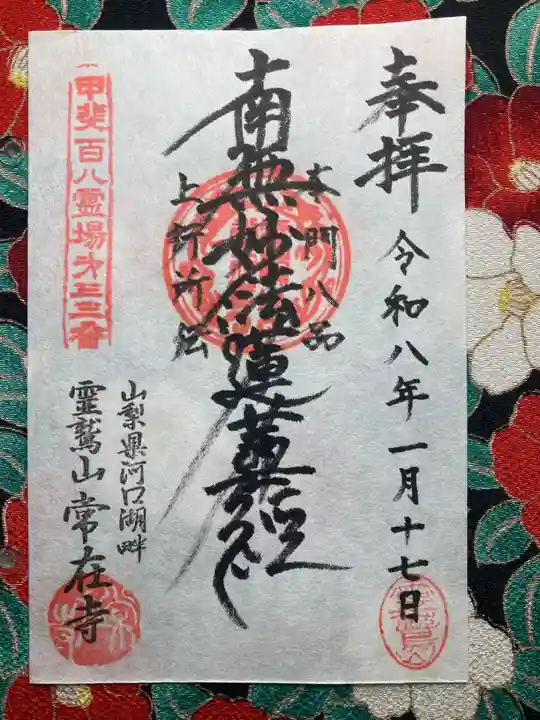 奉拝
令和八年一月十七日
本門八品
南無妙法蓮華経
上行所伝
甲斐百八霊場第三三番
山梨県河口湖畔
霊鷲山常在寺